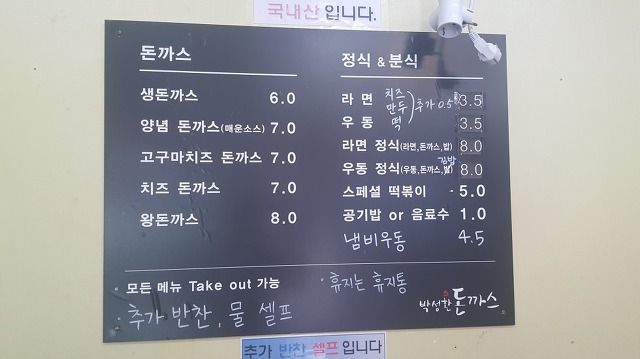 국내산 입니다.
돈까스
생돈까스 6.0
양념 돈까스(매운소스) 7.0
고구마치즈 돈까스 7.0
치즈 돈까스 7.0
왕돈까스 8.0
정식 & 분식
라면 치즈 만두 떡 추가 0.5 3.5
우동 3.5
라면 정식(라면,돈까스,밥) 8.0
김밥
우동 정식(우동,돈까스,밥) 8.0
스페셜 떡볶이 5.0
공기밥 or 음료수 1.0
냄비우동 4.5
· 모든 메뉴 Take out 가능
· 휴지는 휴지통
· 추가 반찬, 물 셀프
박성한 돈까스
추가 반찬 셀프입니다